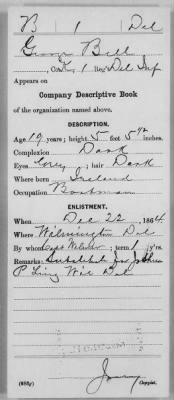 B 1 Del
George Bell
, Co. 1 Reg't Del Inf
Appears on
Company Descriptive Book
of the organization named above.
DESCRIPTION.
Age 19 years; height 5 feet inches.
Complexion Dark
Eyes Grey; hair Dark
Where born Ireland
Occupation Boatman
ENLISTMENT.
When Dec 22, 1864
Where Wilmington Del
By whom Capt ; term 1 y'rs.
Remarks: Substitute for John
P Wil Del
(383g) Copyist.